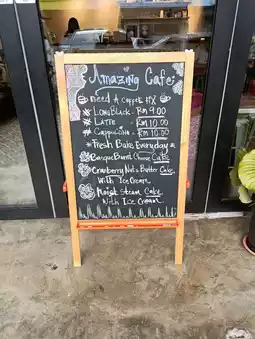 Amazing Cafe
need A coffee FIX
Long Black - RM 9.00
Latte - RM 10.00
Cappuccino - RM 10.00
*Fresh Bake Everyday*
Basque Burnt Cheese Cake
Cranberry Nuts Butter Cake
with Ice Cream
Moist Steam Cake
with Ice Cream